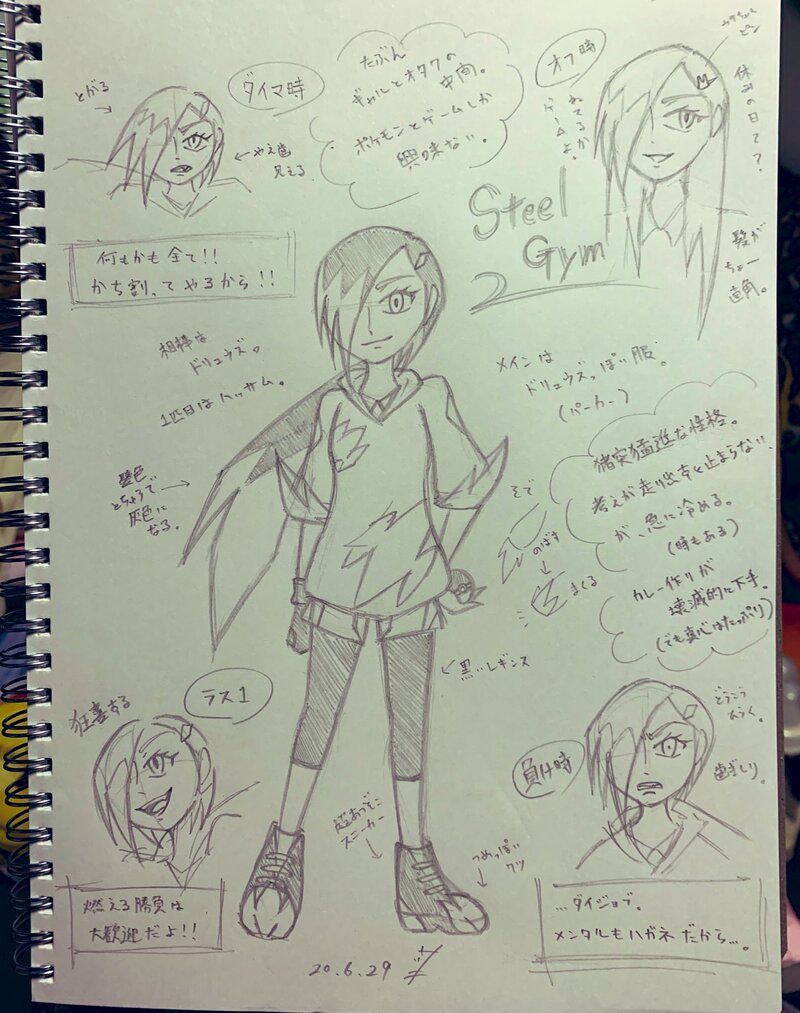 とがる
ダイマ時
やえ歯
見える
たぶん
ギャルとオタクの
中間。
ポケモンとゲームしか
興味ない。
オフ時
ねてるか
ゲームよ。
ピン
休みの日て?
髪が
ちょー
直角。
Steel
Gym
2
何もかも全て!!
かち割ってやるから!!
相棒は
ドリュウズ。
1匹目はハッサム。
メインは
ドリュウズっぽい服。
(パーカー)
髪色
とちゅうで
灰色に
なる。
そで
のばす
まくる
猪突猛進な性格。
考えが走り出すと止まらない
が、急に冷める。
(時もある)
カレー作りが
壊滅的に下手。
(でも真心はたっぷり)
黒いレギンス
狂喜する
ラス1
燃える勝負は
大歓迎だよ!!
超あつぞこ
スニーカー
つめっぽい
クツ
負け時
どうこう
ひらく。
歯ぎしり。
…ダイジョブ。
メンタルもハガネだから…。
20.6.29